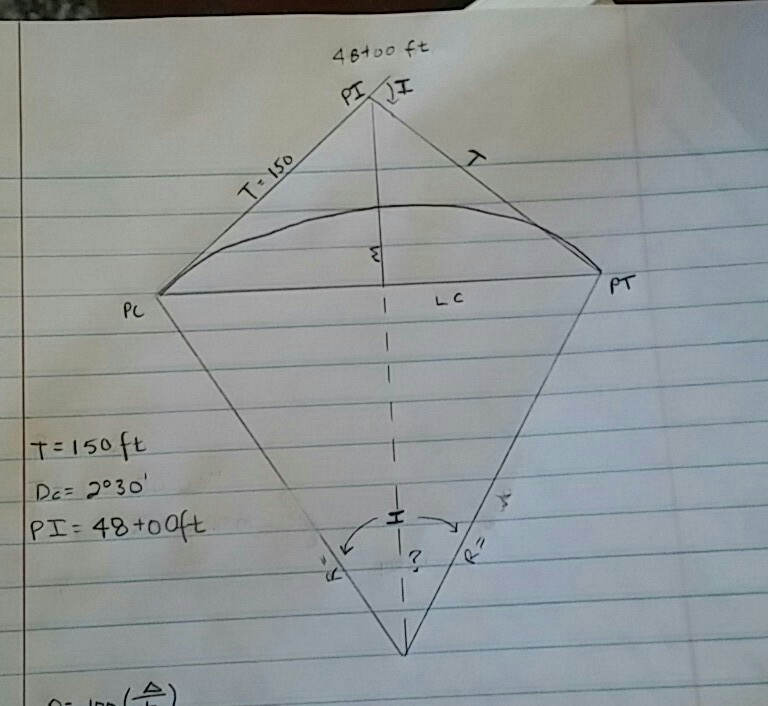 48+00 ft
PI
I
T=150
T
E
PC
LC
PT
T=150ft
Dc= 2°30'
PI= 48+00ft
I
R
?
R=